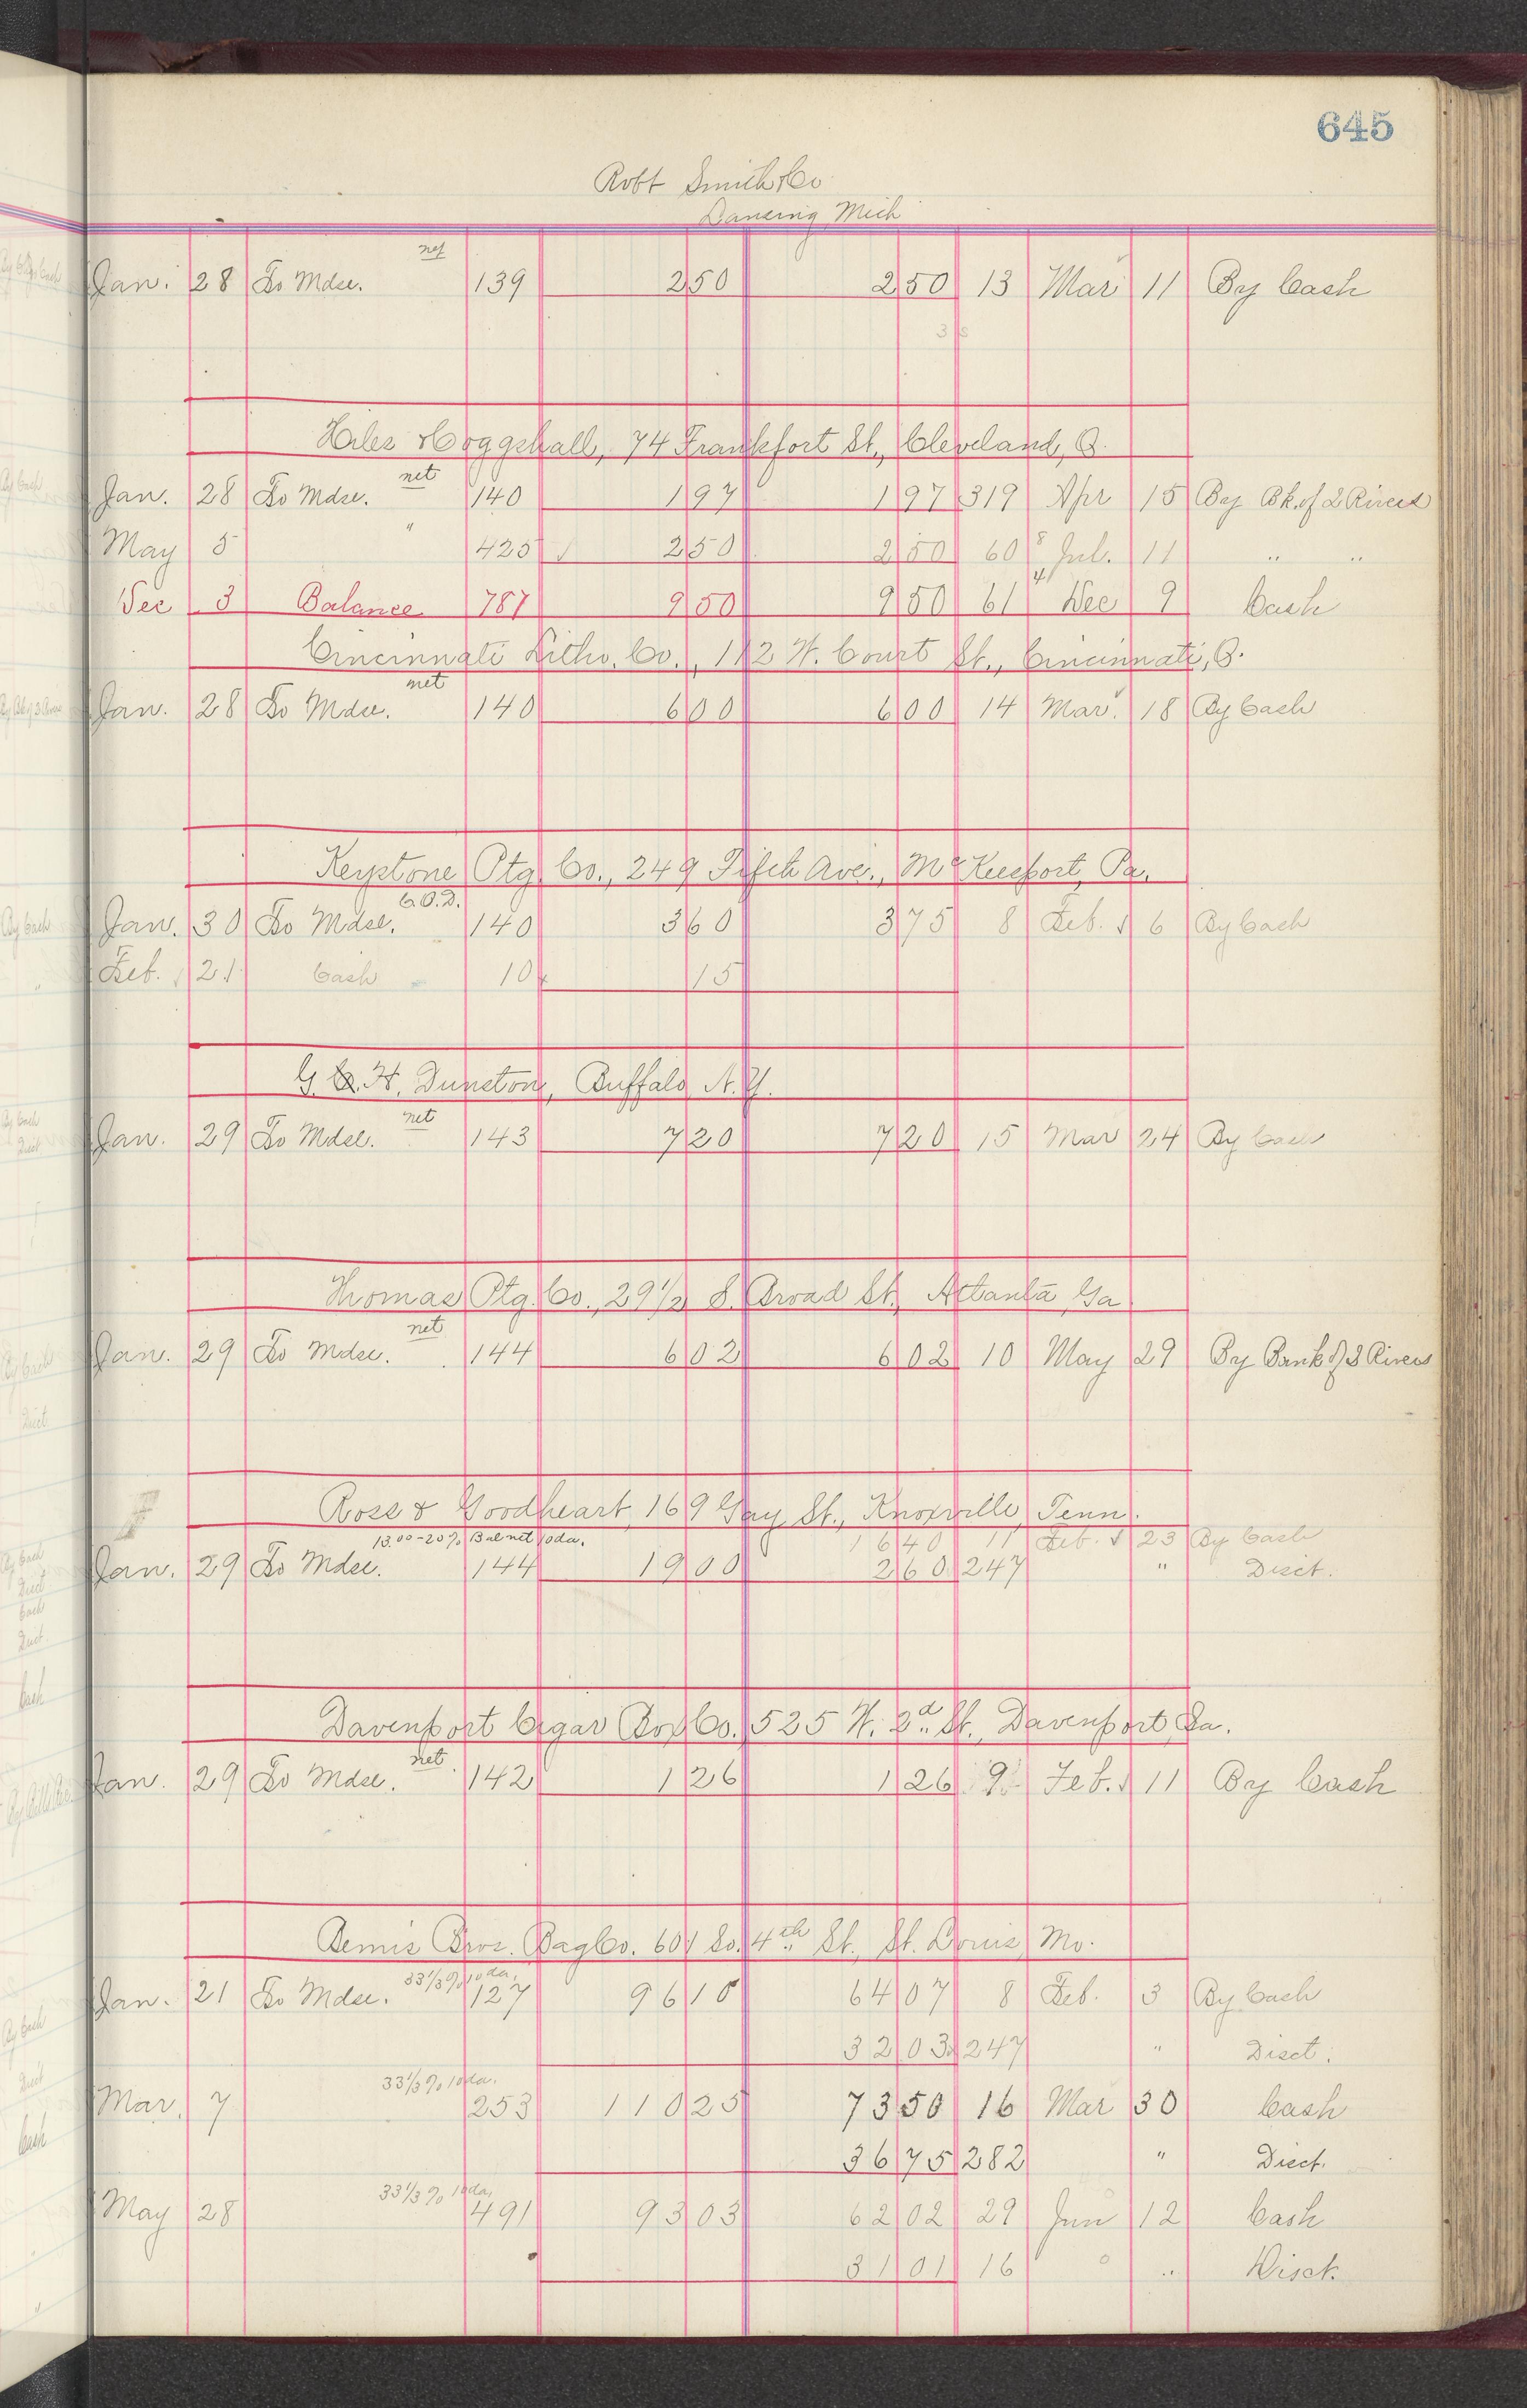 645
Robt Smith & Co
Lansing Mich
net
Jan. 28 To Mdse. 139 2 50 2 50 13 Mar 11 By Cash
Hiles & Coggshall, 74 Frankfort St., Cleveland, O.
net
Jan. 28 To Mdse. 140 1 97 1 97 319 Apr 15 By Bk. of 2 Rivers
May 5 " 425 2 50 2 50 60 Jul. 11 " "
Dec 3 Balance 787 9 50 9 50 61 Dec 9 Cash
Cincinnati Litho. Co., 112 W. Court St., Cincinnati, O.
net
Jan. 28 To Mdse. 140 6 00 6 00 14 Mar. 18 By Cash
Keystone Ptg. Co., 249 Fifth Ave., McKeesport, Pa.
C.O.D.
Jan. 30 To Mdse. 140 3 60 3 75 8 Feb. 6 By Cash
Feb. 21 Cash 10 15
G. H. Dunston, Buffalo N.Y.
net
Jan. 29 To Mdse. 143 7 20 7 20 15 Mar 24 By Cash
Thomas Ptg. Co., 29 1/2 S. Broad St., Atlanta, Ga
net
Jan. 29 To Mdse. 144 6 02 6 02 10 May 29 By Bank of 2 Rivers
Ross & Goodheart, 169 Gay St., Knoxville, Tenn.
13.00-20% Bal net 10 da. 16 40 11 Feb. 23 By Cash
Jan. 29 To Mdse. 144 19 00 2 60 247 " Disct.
Davenport Cigar Box Co., 525 W. 2d St., Davenport, Ia.
net.
Jan. 29 To Mdse. 142 1 26 1 26 9 Feb. 11 By Cash
Bemis Bros. Bag Co. 601 So. 4th St., St. Louis, Mo.
33 1/3 % 10 da.
Jan. 21 To Mdse. 127 96 10 64 07 8 Feb. 3 By Cash
32 03 247 " Disct.
33 1/3 % 10 da.
Mar. 7 253 110 25 73 50 16 Mar 30 Cash
36 75 282 " Disct.
33 1/3 % 10 da.
May 28 491 93 03 62 02 29 Jun 12 Cash
31 01 16 " Disct.